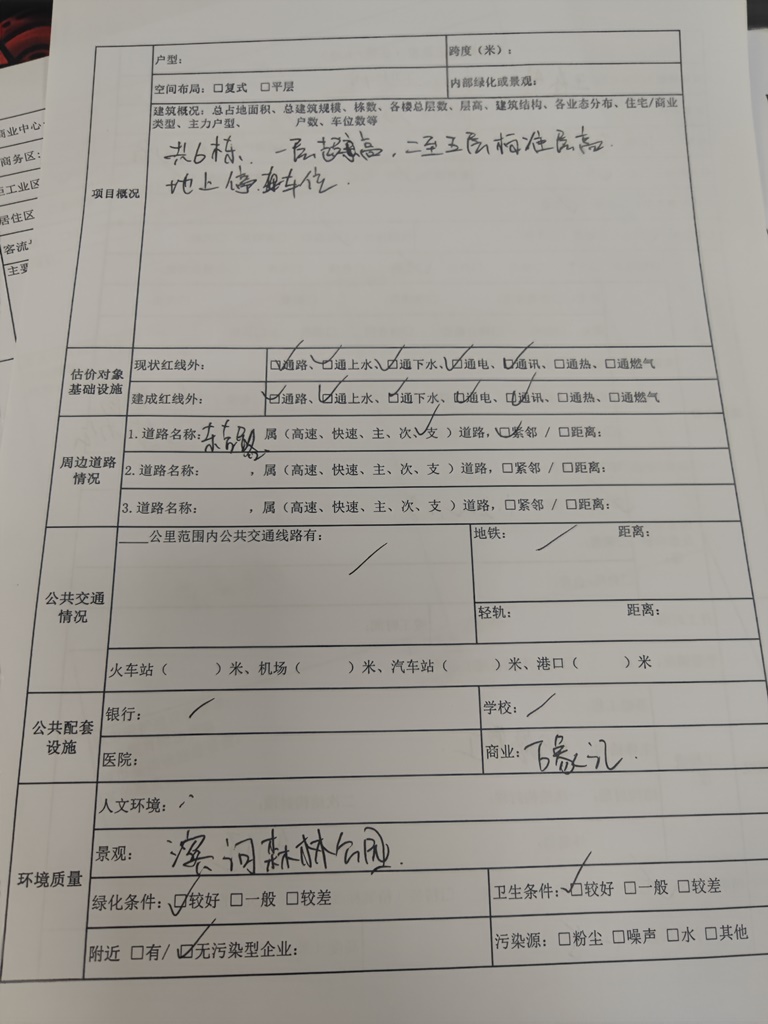 商业中心
商务区:
工业区
居住区
客流
主要
户型:
跨度（米）:
空间布局: □复式 □平层
内部绿化或景观:
项目概况
建筑概况: 总占地面积、总建筑规模、栋数、各楼总层数、层高、建筑结构、各业态分布、住宅/商业
类型、主力户型、 户数、车位数等
共6栋、一层超高，二至五层标准层高.
地上停车位.
估价对象
基础设施
现状红线外:
☑通路、☑通上水、☑通下水、☑通电、☑通讯、□通热、□通燃气
建成红线外:
☑通路、☑通上水、☑通下水、☑通电、☑通讯、□通热、□通燃气
周边道路
情况
1.道路名称: 属（高速、快速、主、次、支✓）道路, ☑紧邻 / □距离:
2.道路名称: ,属（高速、快速、主、次、支 ）道路, □紧邻 / □距离:
3.道路名称: ,属（高速、快速、主、次、支 ）道路, □紧邻 / □距离:
公共交通
情况
____公里范围内公共交通线路有: /
地铁: / 距离:
轻轨: 距离:
火车站（ ）米、机场（ ）米、汽车站（ ）米、港口（ ）米
公共配套
设施
银行: /
学校: /
医院:
商业: 万象汇.
环境质量
人文环境:
景观: 滨河森林公园.
绿化条件: ☑较好 □一般 □较差
卫生条件: ☑较好 □一般 □较差
附近 □有/ ☑无污染型企业:
污染源: □粉尘 □噪声 □水 □其他